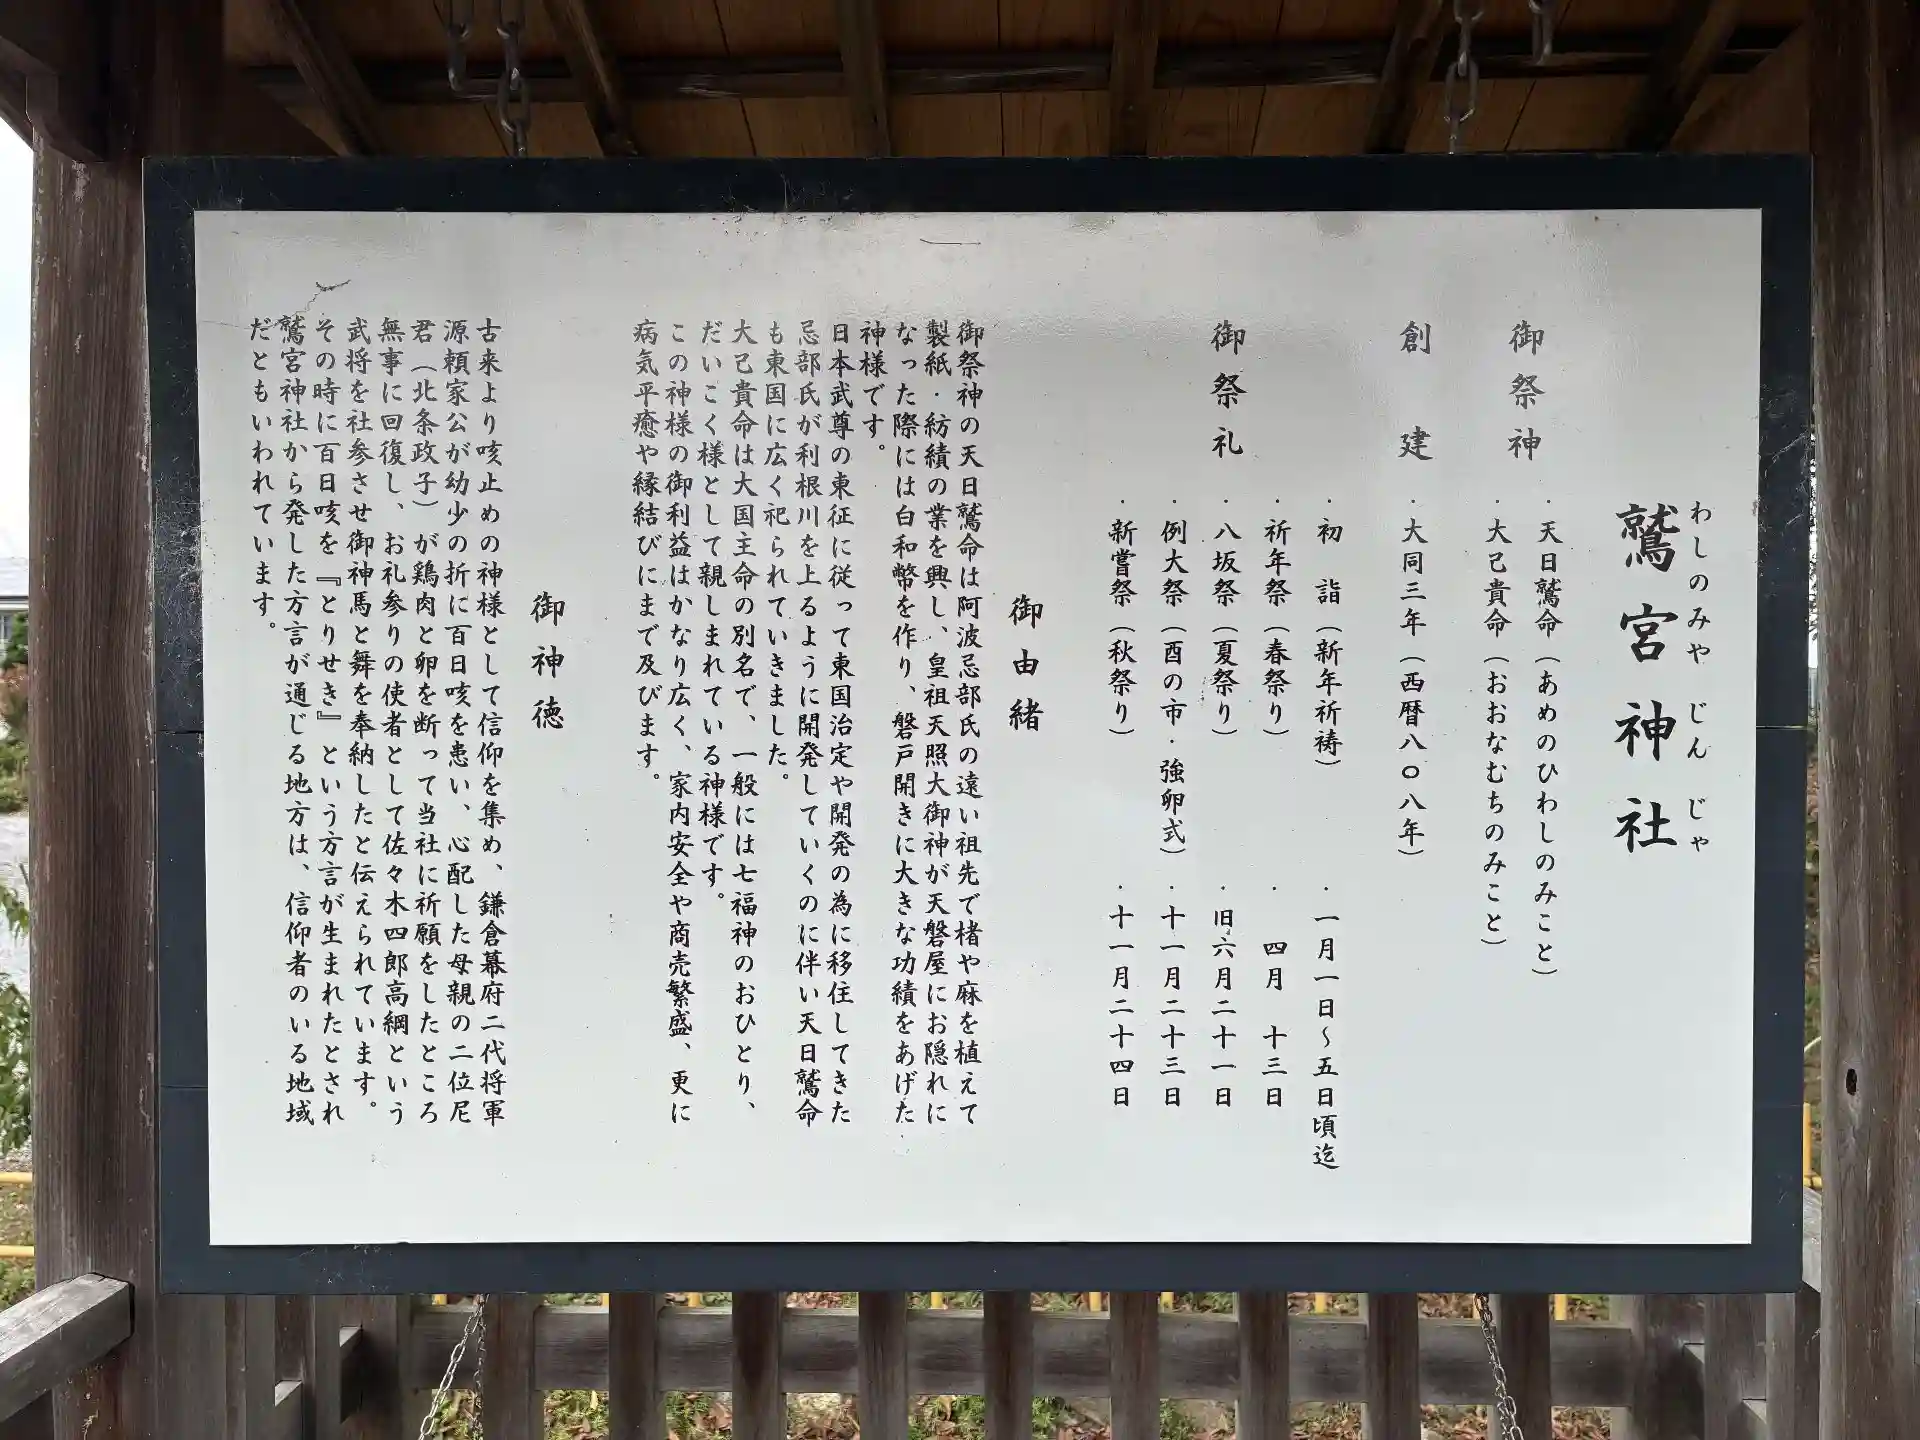 わしのみや じんじゃ
鷲宮神社
御祭神
・天日鷲命（あめのひわしのみこと）
・大己貴命（おおなむちのみこと）
創建
・大同三年（西暦八〇八年）
御祭礼
・初詣（新年祈祷）・一月一日～五日頃迄
・祈年祭（春祭り）・四月 十三日
・八坂祭（夏祭り）・旧六月二十一日
・例大祭（酉の市・強卵式）・十一月二十三日
・新嘗祭（秋祭り）・十一月二十四日
御由緒
御祭神の天日鷲命は阿波忌部氏の遠い祖先で楮や麻を植えて
製紙・紡績の業を興し、皇祖天照大御神が天磐屋にお隠れに
なった際には白和幣を作り、磐戸開きに大きな功績をあげた
神様です。
日本武尊の東征に従って東国治定や開発の為に移住してきた
忌部氏が利根川を上るように開発していくのに伴い天日鷲命
も東国に広く祀られていきました。
大己貴命は大国主命の別名で、一般には七福神のおひとり、
だいこく様として親しまれている神様です。
この神様の御利益はかなり広く、家内安全や商売繁盛、更に
病気平癒や縁結びにまで及びます。
御神徳
古来より咳止めの神様として信仰を集め、鎌倉幕府二代将軍
源頼家公が幼少の折に百日咳を患い、心配した母親の二位尼
君（北条政子）が鶏肉と卵を断って当社に祈願をしたところ
無事に回復し、お礼参りの使者として佐々木四郎高綱という
武将を社参させ御神馬と舞を奉納したと伝えられています。
その時に百日咳を『とりせき』という方言が生まれたとされ
鷲宮神社から発した方言が通じる地方は、信仰者のいる地域
だともいわれています。